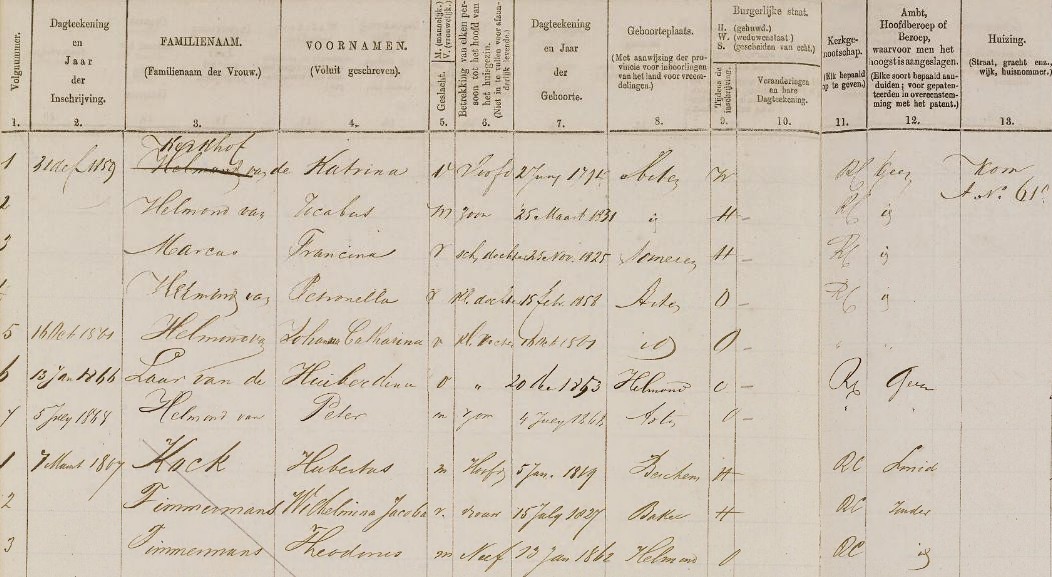 Volgnummer.
Dagteekening en Jaar der Inschrijving.
FAMILIENAAM. (Familienaam der Vrouw.)
VOORNAMEN. (Voluit geschreven).
Geslacht. M. (mannelijk.) V. (vrouwelijk.)
Betrekking van elken persoon tot het hoofd van het huisgezin. (Niet in te vullen voor afzonderlijk levende.)
Dagteekening en Jaar der Geboorte.
Geboorteplaats. (Met aanwijzing der provincie voor inboorlingen van het land voor vreemdelingen.)
Burgerlijke staat.
H. (gehuwd.)
W. (weduwenstaat)
S. (gescheiden van echt.)
Tijdens de inschrijving.
Veranderingen en hare Dagteekening.
Kerkgenootschap. (Elk bepaald op te geven.)
Ambt, Hoofdberoep of Beroep, waarvoor men het hoogst is aangeslagen. (Elke soort bepaald aanduiden; voor gepatenteerden in overeenstemming met het patent.)
Huizing. (Straat, gracht enz., wijk, huisnommer.)
1. 2. 3. 4. 5. 6. 7. 8. 9. 10. 11. 12. 13.
Kerkhof
1 1859 Helmond van de Katrina V Hoofd Asten W RC Geen Kom
A. No. 61
2 Helmond van Jacobus M zoon 25 Maart 1831 id H RC id
3 Marcus Francina V sch. dochter 25 Nov. 1825 Someren H RC id
Helmond van Petronella kl. dochter 18 Febr Asten O RC id
5 16 Helmond Johanna Catharina v kl. dochter id O
6 13 Jan 1866 Laar van de Huiberdina v " 20 dec 1853 Helmond O RC Geen
7 5 July 1868 Helmond van Peter m zoon 4 July 1868 Asten O " "
1 7 Maart 1867 Kock Hubertus m Hoofd 5 Jan. H RC Smid
2 Timmermans Wilhelmina Jacoba v. vrouw 15 July 1827 Bakel H RC zonder
3 Timmermans Theodorus m Neef 13 Jan 1862 Helmond O RC id